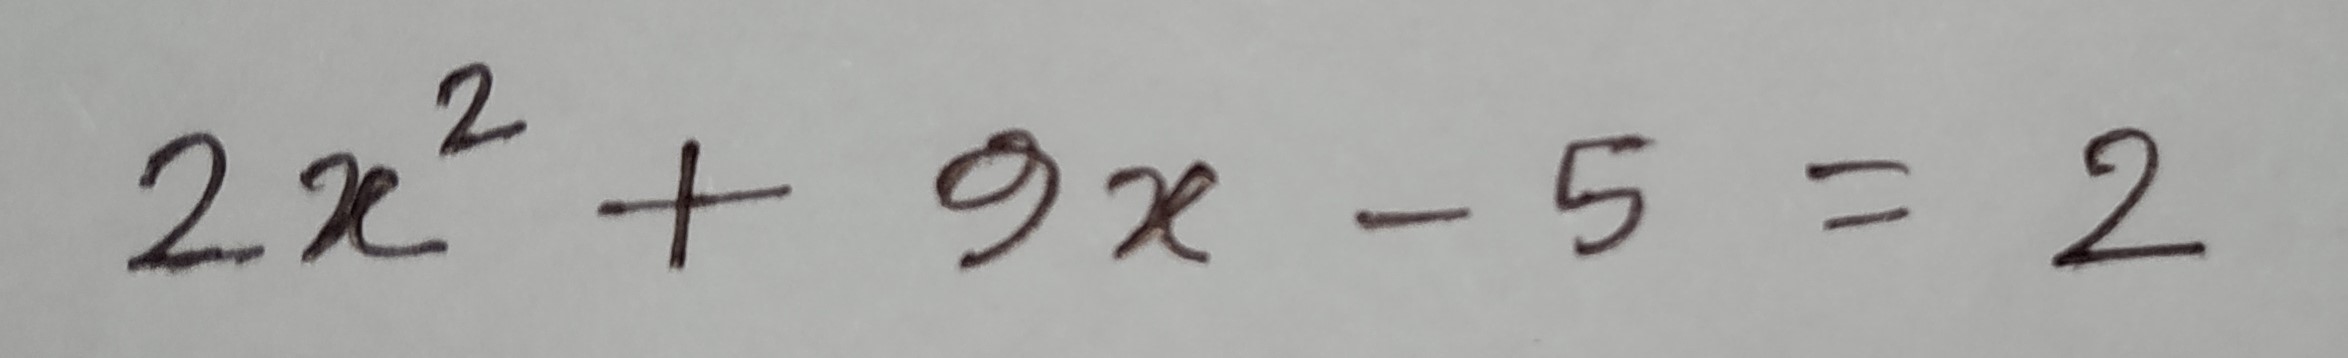 2x² + 9x - 5 = 2